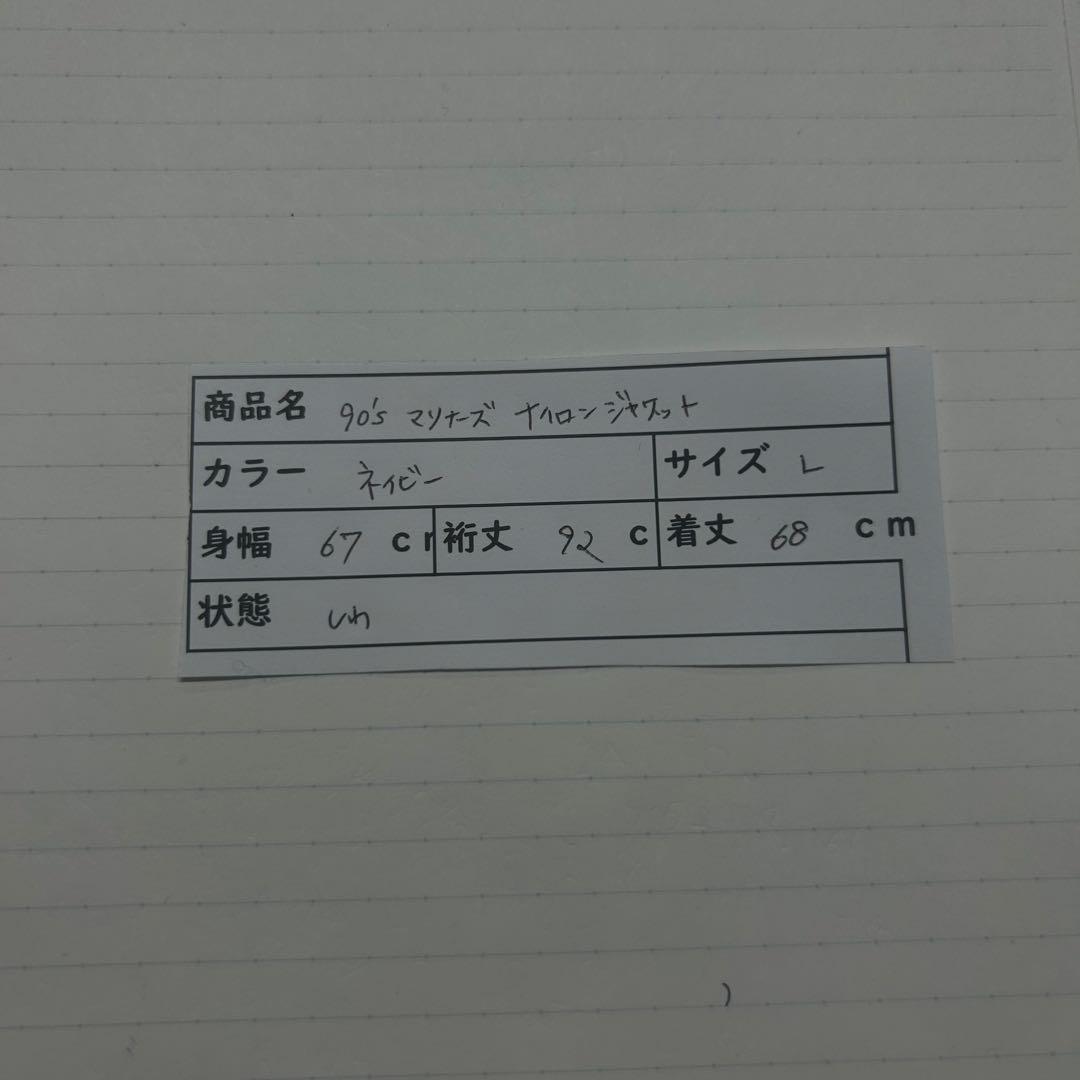 商品名 90's マリナーズ ナイロンジャケット
カラー ネイビー サイズ L
身幅 67 cm 裄丈 92 c 着丈 68 cm
状態 しわ